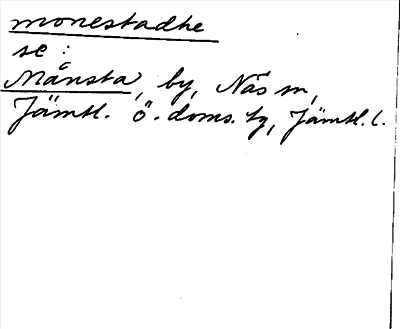 monestadhe
se :
Månsta, by, Näs sn,
Jämtl. ö. doms. tg, Jämtl. l.